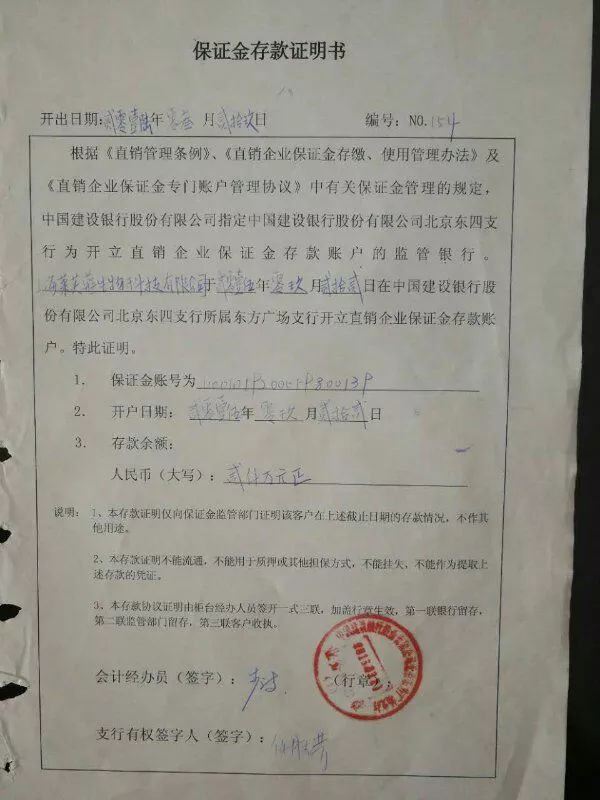 保证金存款证明书
开出日期:贰零壹陆年 零叁 月 贰拾玖日 编号:NO.154
根据《直销管理条例》、《直销企业保证金存缴、使用管理办法》及
《直销企业保证金专门账户管理协议》中有关保证金管理的规定,
中国建设银行股份有限公司指定中国建设银行股份有限公司北京东四支
行为开立直销企业保证金存款账户的监管银行。
生物科技有限公司于贰零壹伍年 零玖 月贰拾贰日在中国建设银行股
份有限公司北京东四支行所属东方广场支行开立直销企业保证金存款账
户。特此证明。
1. 保证金账号为
2. 开户日期: 贰零壹伍年 零玖 月 贰拾贰 日
3. 存款余额:
人民币(大写): 贰仟万元正
说明: 1、本存款证明仅向保证金监管部门证明该客户在上述截止日期的存款情况,不作其
他用途。
2、本存款证明不能流通,不能用于质押或其他担保方式,不能挂失、不能作为提取上
述存款的凭证。
3、本存款协议证明由柜台经办人员签开一式三联,加盖行章生效,第一联银行留存,
第二联监管部门留存,第三联客户收执。
会计经办员(签字): (行章):
支行有权签字人(签字):